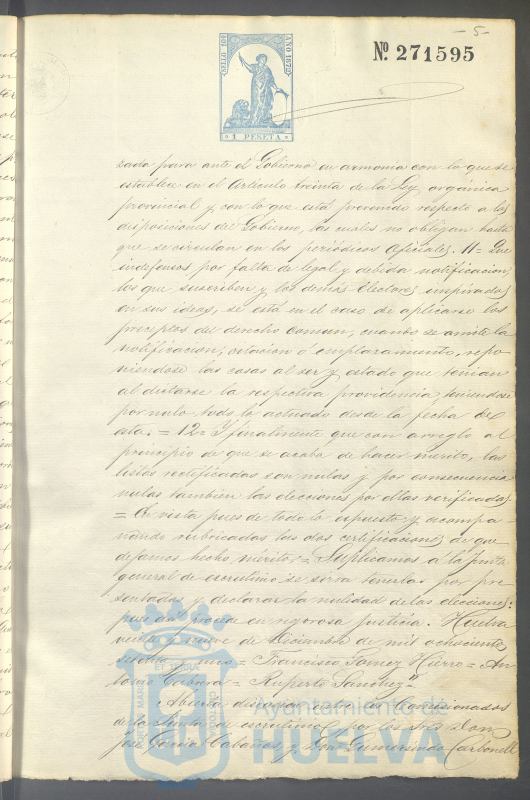 - 5 -
Nº. 271595
SELLO 10º
AÑO 1872
1 PESETA
zada para ante el Gobierno en armonia con lo que se
establece en el articulo treinta de la Ley organica
provincial y con lo que está prevenido respecto a las
disposiciones del Gobierno, las cuales no obligan hasta
que se circulan en los periódicos oficiales. 11= Que
indefensos por falta de legal y debida notificacion
los que suscriben y los demas Electores inspirados
en sus ideas, se está en el caso de aplicarse los
preceptos del derecho comun, cuando se omite la
notificacion, citacion ó emplazamiento, repo
niendose las cosas al ser y estado que tenian
al dictarse la respectiva providencia, teniendose
por nulo todo lo actuado desde la fecha de
esta. = 12= Y finalmente que con arreglo al
principio de que se acaba de hacer mérito, las
listas rectificadas son nulas y por consecuencia
nulas tambien las elecciones por ellas verificadas
= En vista pues de todo lo espuesto y acompa
ñando rubricadas las dos certificaciones de que
dejamos hecho mérito = Suplicamos a la Junta
general de escrutinio se sirva tenerlas por pre
sentadas y declarar la nulidad de las elecciones:
pues asi procede en rigorosa justicia. Huelva
veinte y nueve de Diciembre de mil ochocientos
setenta y uno = Francisco Gomez Hierro = An
tonio Cabrera = Ruperto Sanchez"
Abierta discusion entre los Comisionados
de la Junta de escrutinio, por los Sres. Don
José Garcia Cabañas y Don Gumersindo Carbonell
Ayuntamiento de
HUELVA